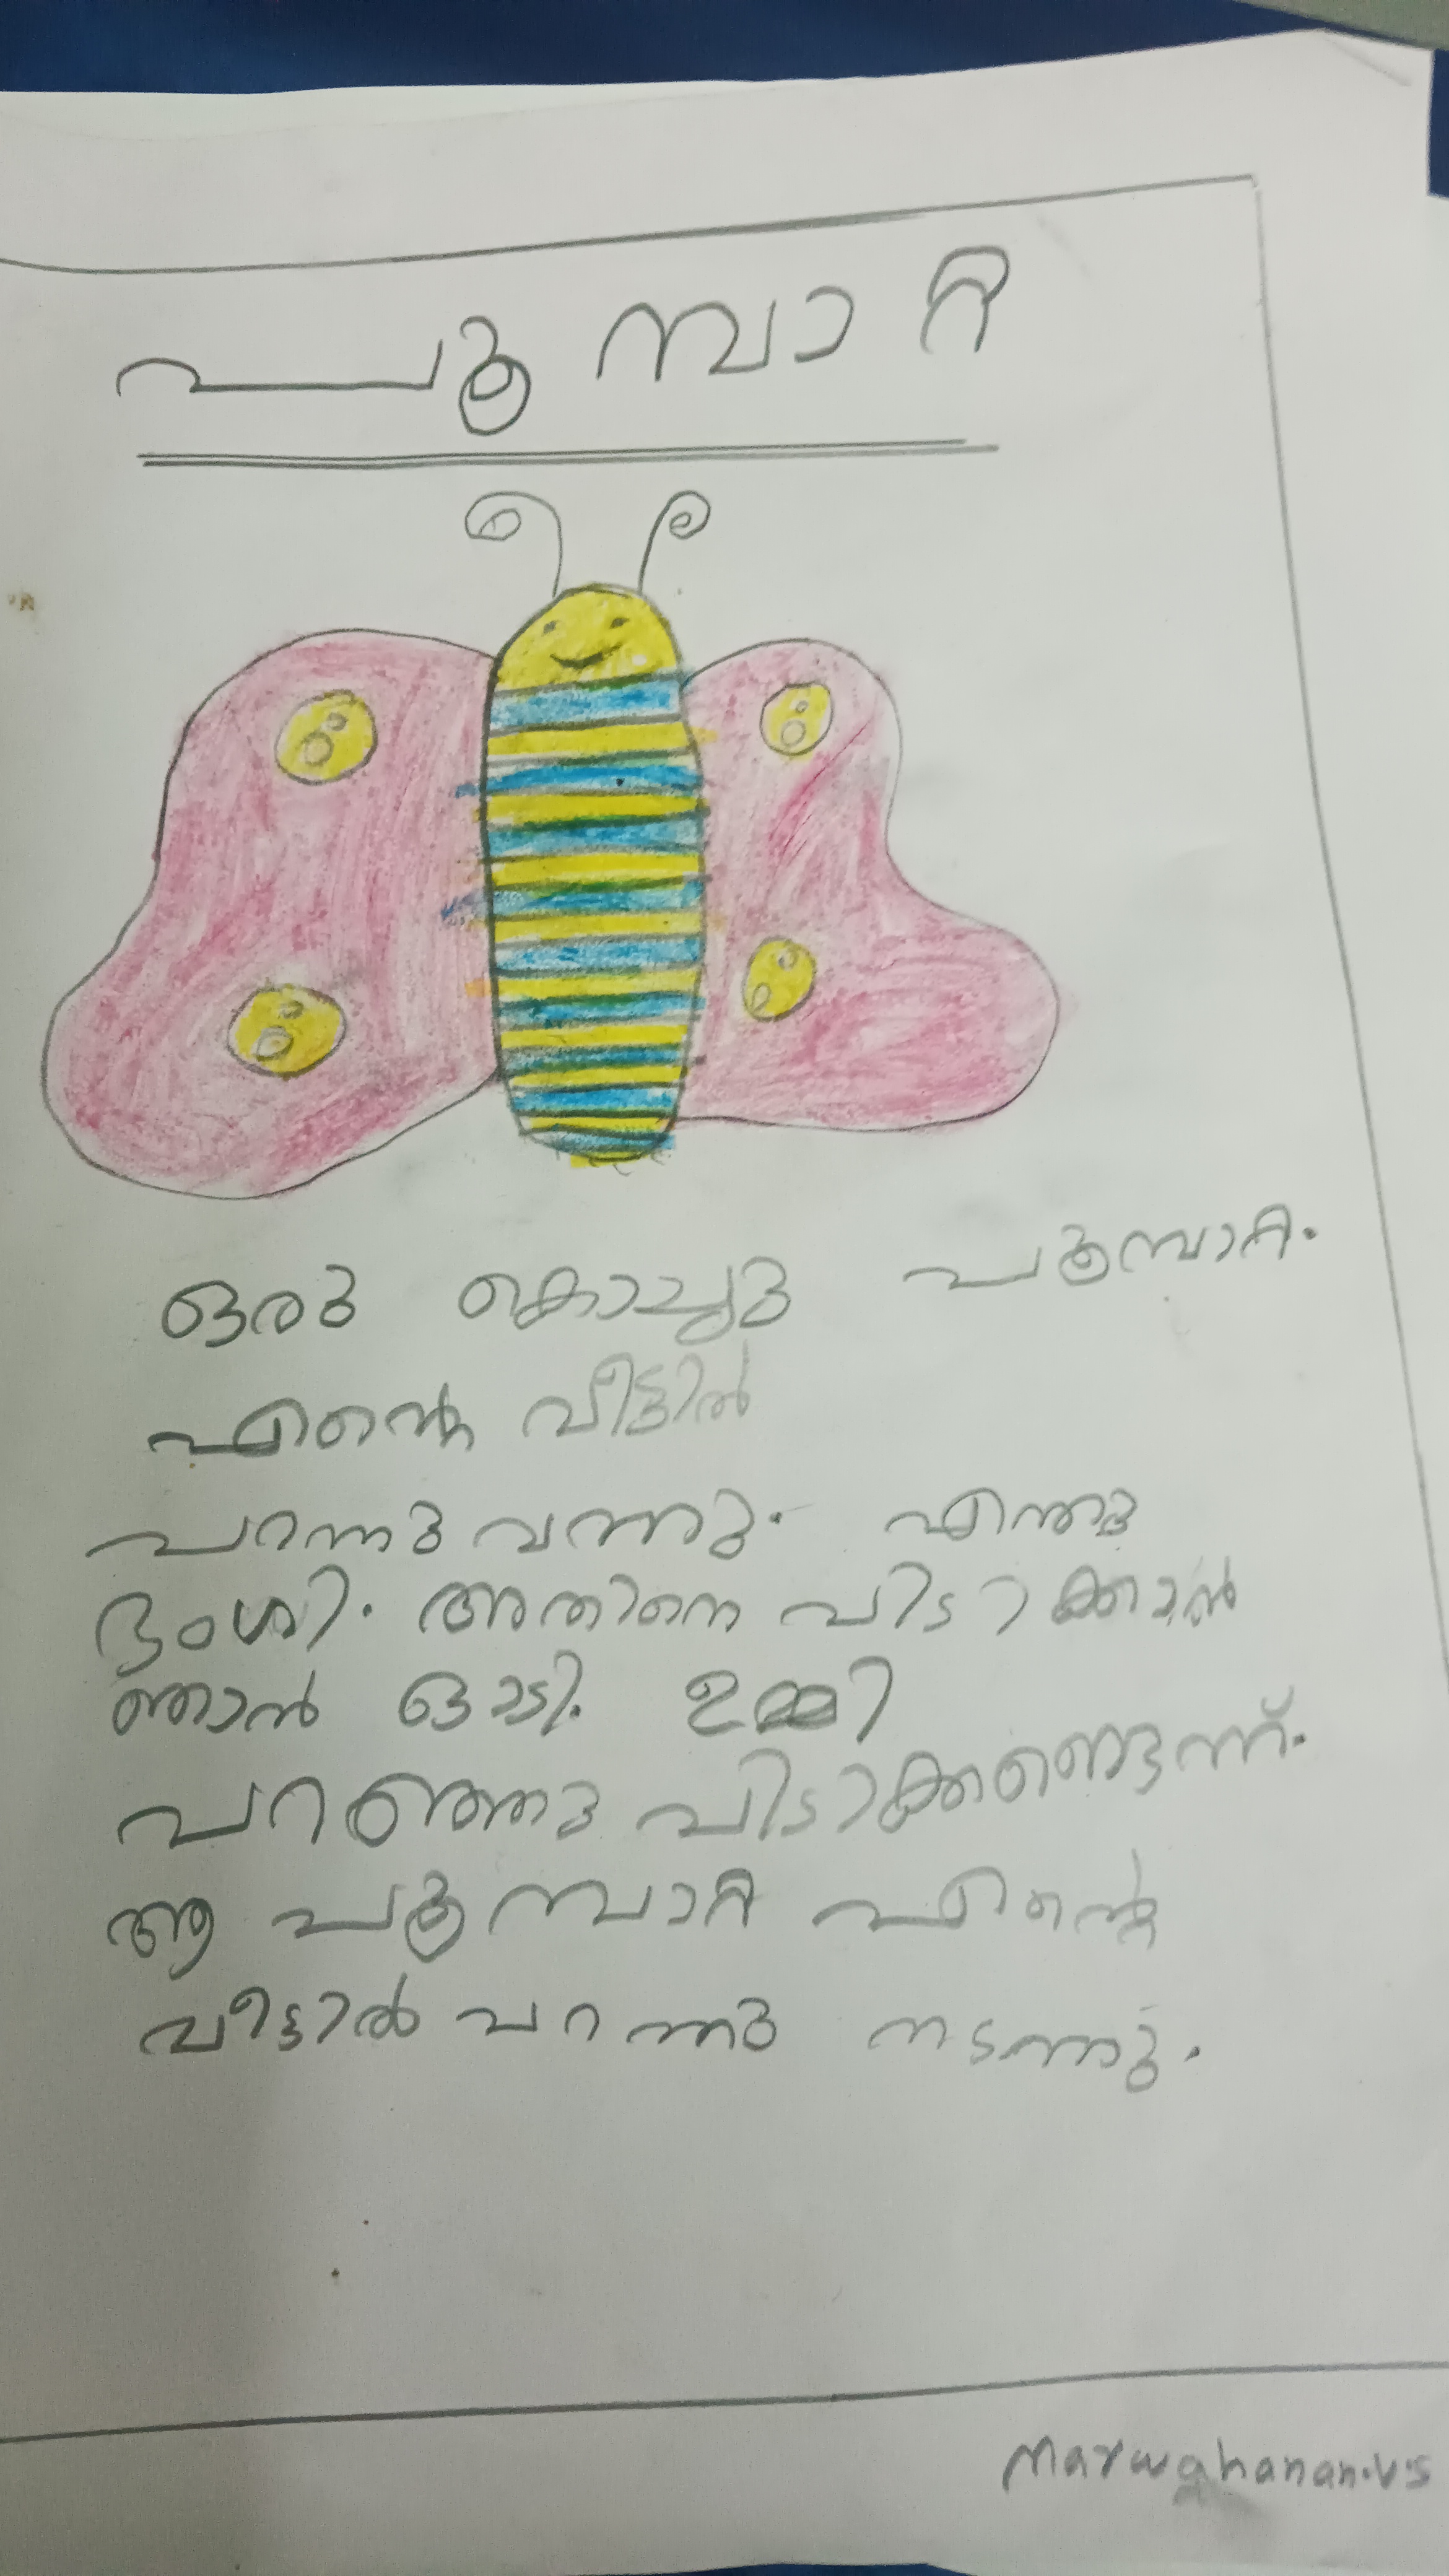 പൂമ്പാറ്റ
ഒരു കൊച്ചു പൂമ്പാറ്റ.
എന്റെ വീട്ടിൽ
പറന്നു വന്നു. എന്തു
ഭംഗി. അതിനെ പിടിക്കാൻ
ഞാൻ ഓടി. ഉമ്മി
പറഞ്ഞു പിടിക്കണ്ടെന്ന്.
ആ പൂമ്പാറ്റ എന്റെ
വീട്ടിൽ പറന്നു നടന്നു.
Marwahanan.v.s